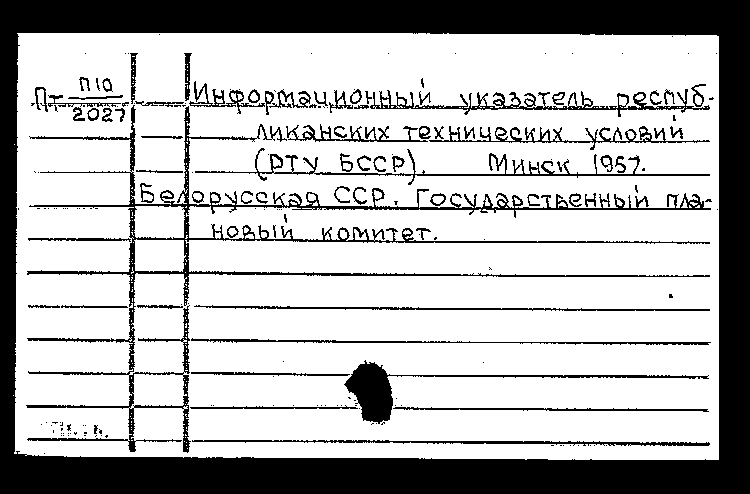 Пт П10/2027
Информационный указатель респуб-
ликанских технических условий
(РТУ БССР). Минск, 1957.
Белорусская ССР. Государственный пла-
новый комитет.